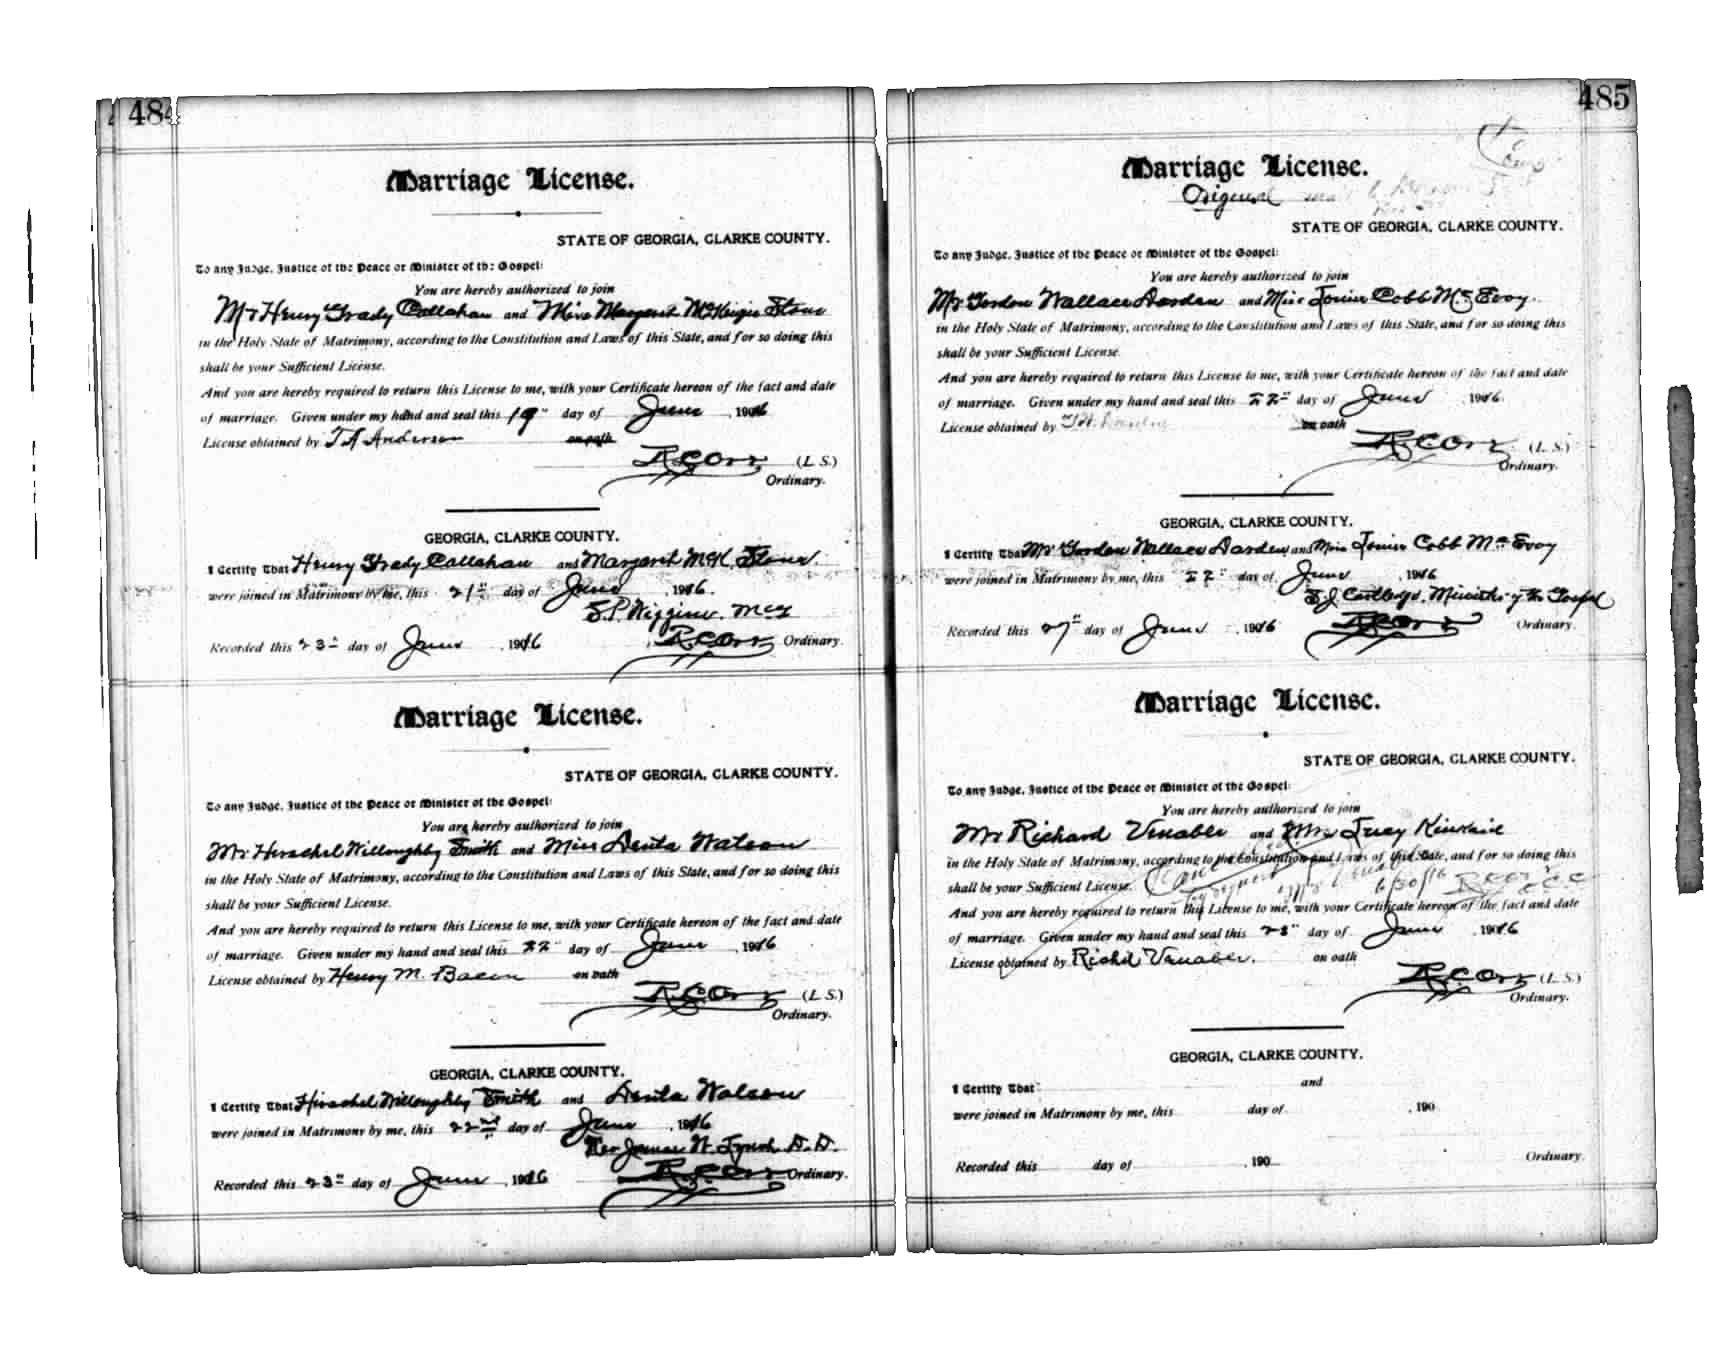 484
Marriage License.
STATE OF GEORGIA, CLARKE COUNTY.
To any Judge, Justice of the Peace or Minister of the Gospel:
You are hereby authorized to join
Mr Henry Grady Callahan and Miss Margaret McKenzie Stone
in the Holy State of Matrimony, according to the Constitution and Laws of this State, and for so doing this
shall be your Sufficient License.
And you are hereby required to return this License to me, with your Certificate hereon of the fact and date
of marriage. Given under my hand and seal this 19" day of June, 1916
License obtained by T A Anderson on oath
R.C. Orr (L. S.)
Ordinary.
GEORGIA, CLARKE COUNTY.
I Certify That Henry Grady Callahan and Margaret McK. Stone.
were joined in Matrimony by me, this 21st day of June, 1916.
S.P. Wiggins. M.G.
Recorded this 23" day of June, 1916 R.C. Orr Ordinary.
Marriage License.
STATE OF GEORGIA, CLARKE COUNTY.
To any Judge, Justice of the Peace or Minister of the Gospel:
You are hereby authorized to join
Mr Herschel Willoughby Smith and Miss Watson
in the Holy State of Matrimony, according to the Constitution and Laws of this State, and for so doing this
shall be your Sufficient License.
And you are hereby required to return this License to me, with your Certificate hereon of the fact and date
of marriage. Given under my hand and seal this 22" day of June, 1916
License obtained by Henry M. Bacon on oath
R.C. Orr (L. S.)
Ordinary.
GEORGIA, CLARKE COUNTY.
I Certify That Herschel Willoughby Smith and Watson
were joined in Matrimony by me, this 22nd day of June, 1916
Rev James W. Lynch D.D.
Recorded this 23" day of June, 1916 R.C. Orr Ordinary.
485
Marriage License.
Original
STATE OF GEORGIA, CLARKE COUNTY.
To any Judge, Justice of the Peace or Minister of the Gospel:
You are hereby authorized to join
Mr Gordon Wallace Darden and Miss Louise Cobb McEvoy.
in the Holy State of Matrimony, according to the Constitution and Laws of this State, and for so doing this
shall be your Sufficient License.
And you are hereby required to return this License to me, with your Certificate hereon of the fact and date
of marriage. Given under my hand and seal this 22" day of June, 1916.
License obtained by on oath
R.C. Orr (L. S.)
Ordinary.
GEORGIA, CLARKE COUNTY.
I Certify That Mr Gordon Wallace Darden and Miss Louise Cobb McEvoy
were joined in Matrimony by me, this 22" day of June, 1916
Minister of the Gospel
Recorded this 27" day of June, 1916 R.C. Orr Ordinary.
Marriage License.
STATE OF GEORGIA, CLARKE COUNTY.
To any Judge, Justice of the Peace or Minister of the Gospel:
You are hereby authorized to join
Mr Richard Venable and Mrs Lucy Kinkaid
in the Holy State of Matrimony, according to the Constitution and Laws of this State, and for so doing this
shall be your Sufficient License. 6/30/16
And you are hereby required to return this License to me, with your Certificate hereon of the fact and date
of marriage. Given under my hand and seal this 23" day of June, 1916
License obtained by Richd Venable. on oath
R.C. Orr (L. S.)
Ordinary.
GEORGIA, CLARKE COUNTY.
I Certify That and
were joined in Matrimony by me, this day of , 190
Recorded this day of , 190 Ordinary.